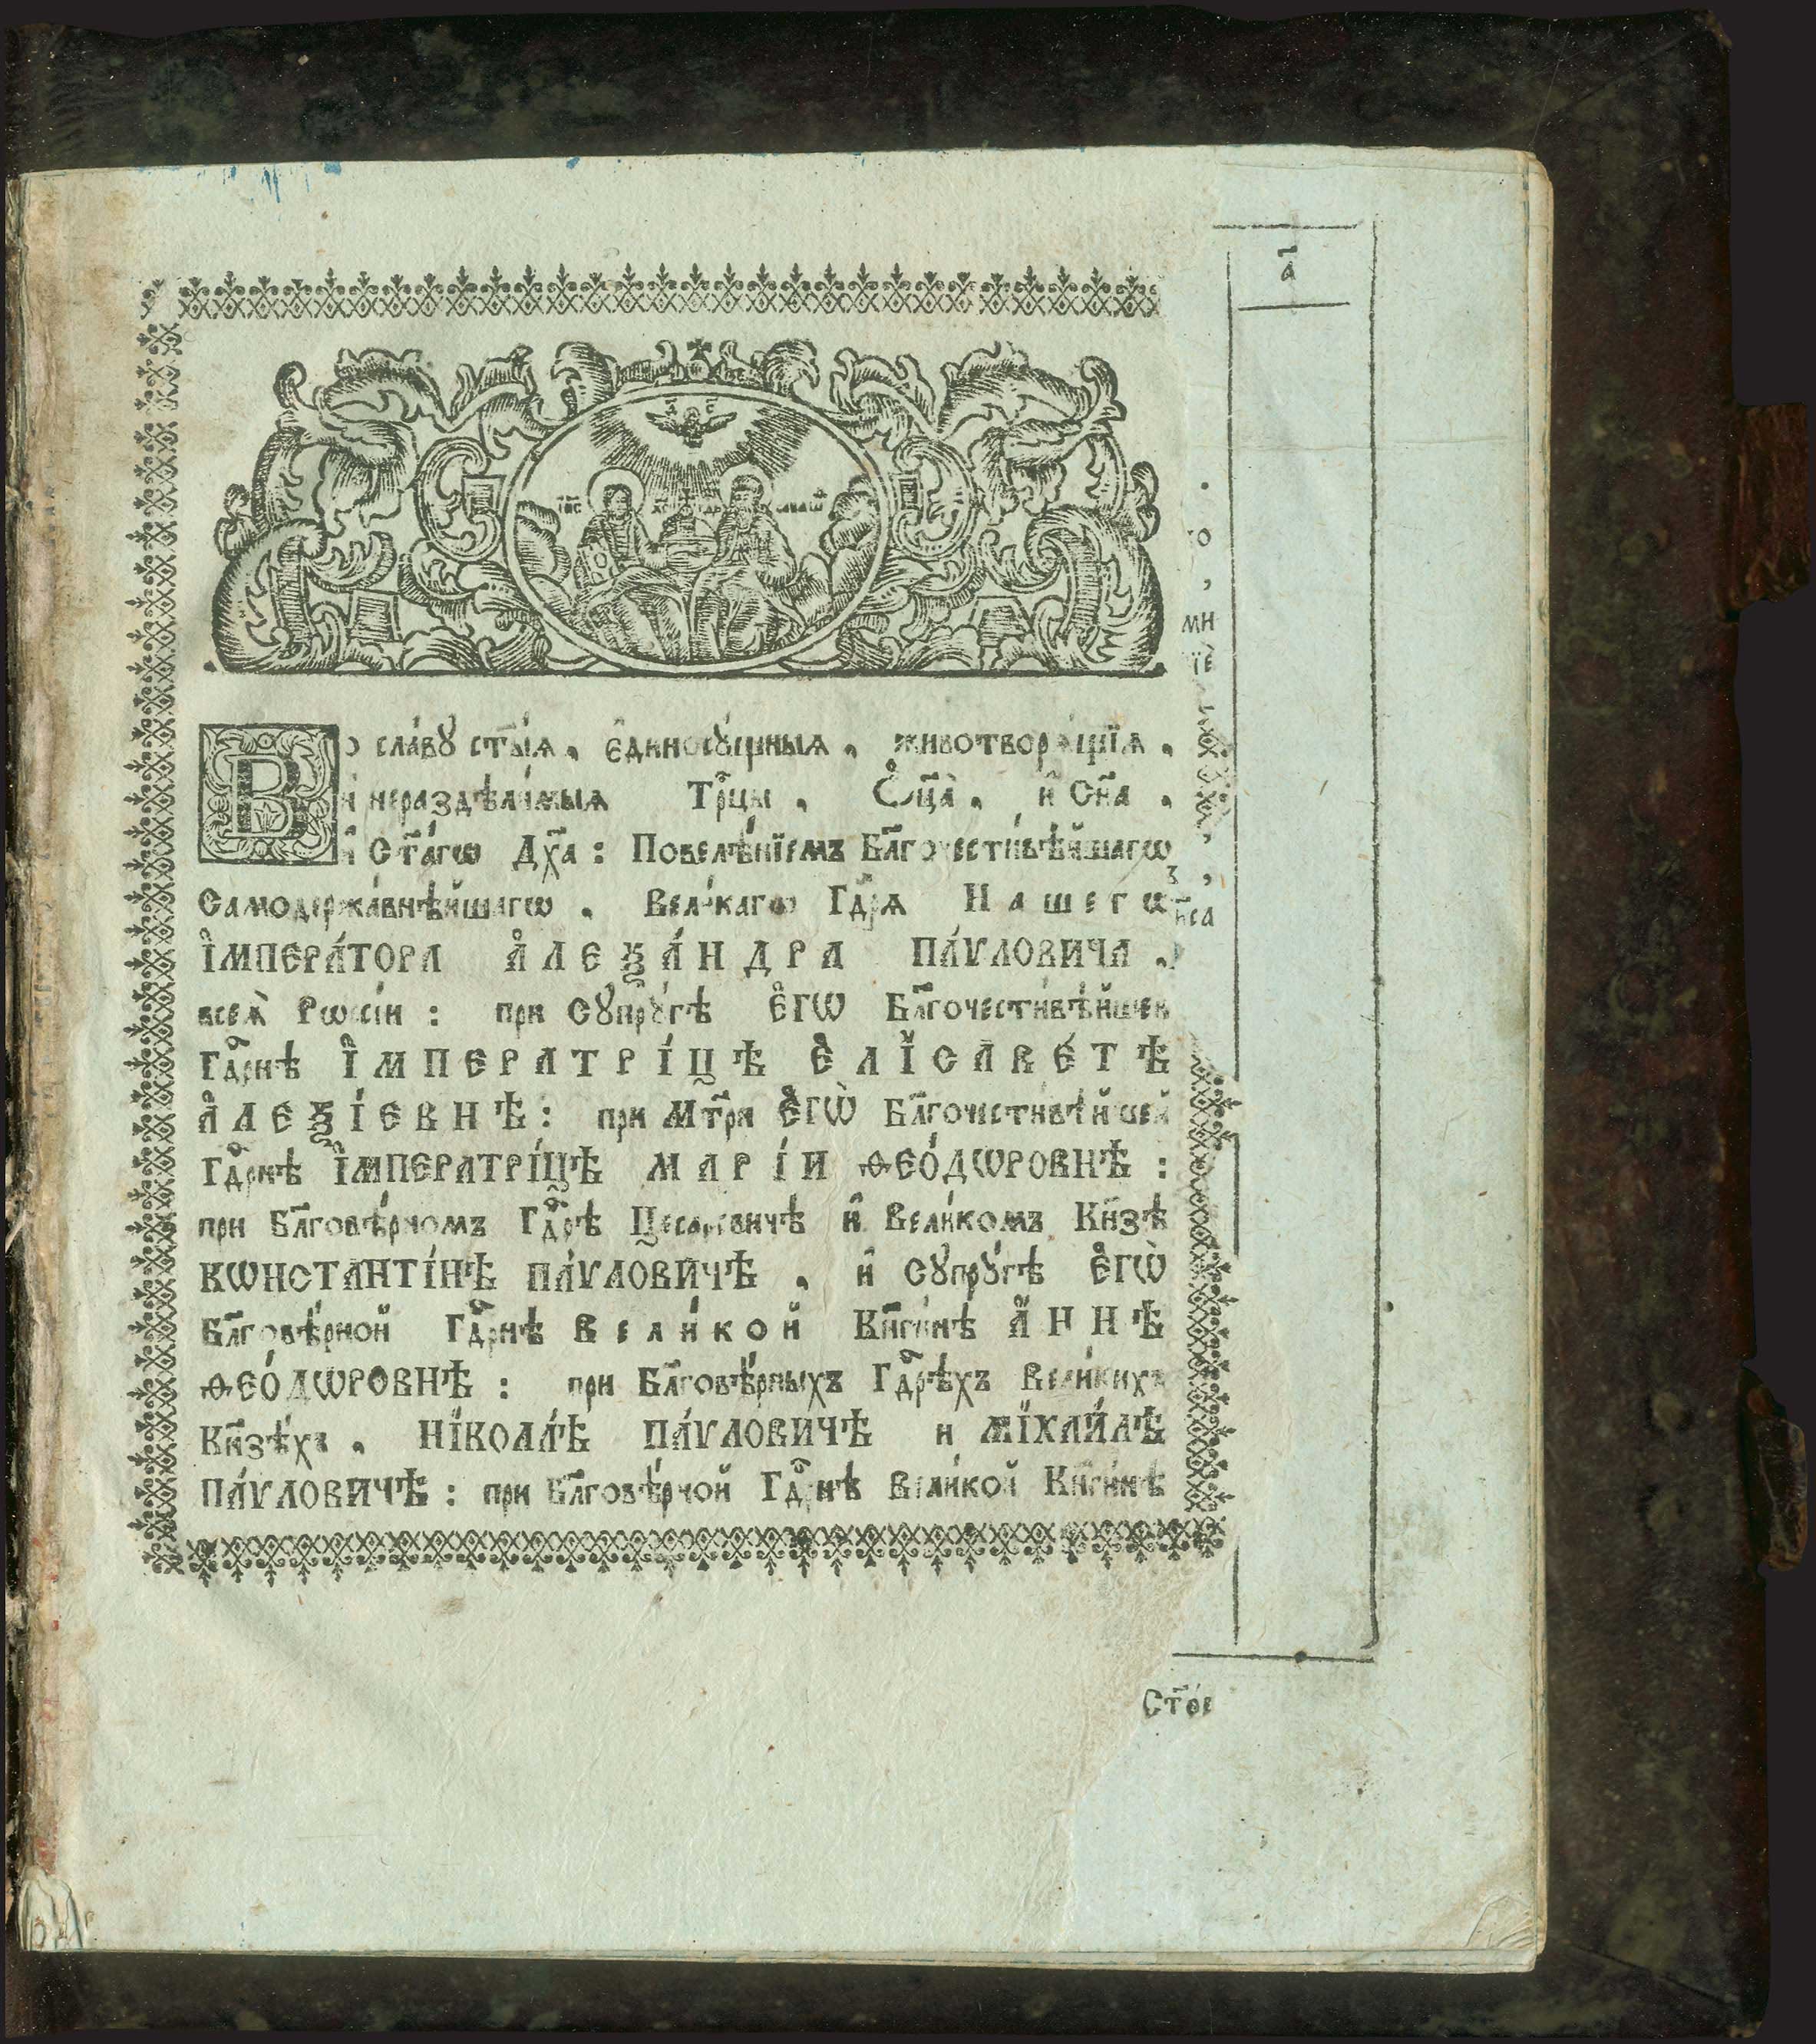 а҃
Во сла́вꙋ ст҃ы́ѧ, є҆диносꙋ́щныѧ, животворѧ́щїѧ,
и҆ нераздѣли́мыѧ Трⷪ҇цы, Ѻ҆ц҃а̀, и҆ Сн҃а,
и҆ Ст҃а́гѡ Дх҃а: Повелѣ́нїемъ Бл҃гочести́вѣйшагѡ
Самодержа́внѣйшагѡ, Вели́кагѡ Гдⷭ҇рѧ Нашегѡ
І҆МПЕРА́ТОРА А҆ЛЕѮА́НДРА ПА́ѴЛОВИЧА,
всеѧ̀ Рѡссі́и: при Сꙋпрꙋ́гѣ Є҆ГѠ Бл҃гочести́вѣйшей
Гдⷭ҇рнѣ І҆МПЕРАТРІ́ЦѢ Є҆ЛІСАВЕ́ТѢ
А҆ЛЕѮІ́ЕВНѢ: при Мт҃ри Є҆ГѠ̀ Бл҃гочести́вѣйшей
Гдⷭ҇рнѣ І҆МПЕРАТРІ́ЦѢ МАРІ́И ѲЕО́ДѠРОВНѢ:
при Бл҃говѣ́рномъ Гдⷭ҇рѣ Цесаревичѣ и҆ Вели́комъ Кн҃зѣ
КѠНСТАНТІ́НѢ ПА́ѴЛОВИЧѢ, и҆ Сꙋпрꙋ́гѣ Є҆ГѠ̀
Бл҃говѣ́рной Гдⷭ҇рнѣ Вели́кой Кн҃ги́нѣ А҆́ННѢ
ѲЕО́ДѠРОВНѢ: при Бл҃говѣ́рныхъ Гдⷭ҇рѣхъ Вели́кихъ
Кн҃зѣ́хъ, НІКОЛА́Ѣ ПА́ѴЛОВИЧѢ и МІХАИ́ЛѢ
ПА́ѴЛОВИЧѢ: при Бл҃говѣ́рной Гдⷭ҇рнѣ Вели́кой Кн҃ги́нѣ